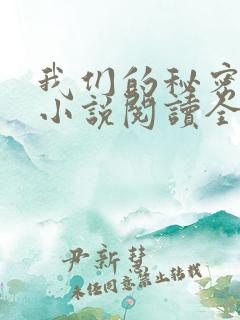 我们的秘密
小说閱讀全
尹新慧
未经同意禁止转载